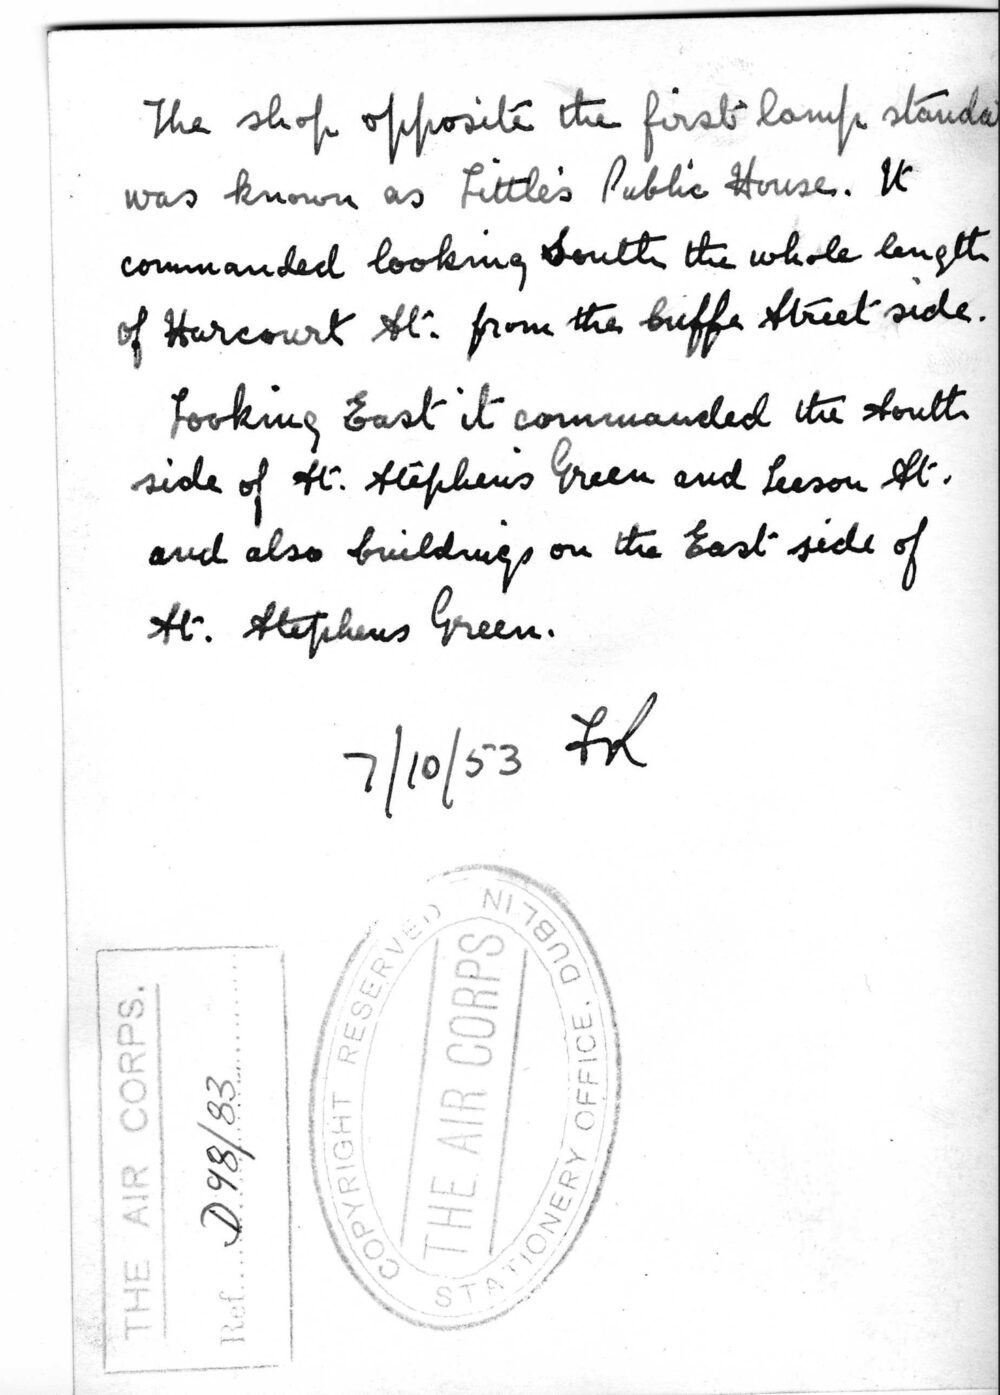 The shop opposite the first lamp standa
was known as Little's Public House. It
commanded looking South the whole length
of Harcourt St. from the Cuffe Street side.
Looking East it commanded the South
side of St. Stephen's Green and Leeson St.
and also buildings on the East side of
St. Stephens Green.
7/10/53
THE AIR CORPS.
Ref. D98/83
COPYRIGHT RESERVED
THE AIR CORPS
STATIONERY OFFICE, DUBLIN